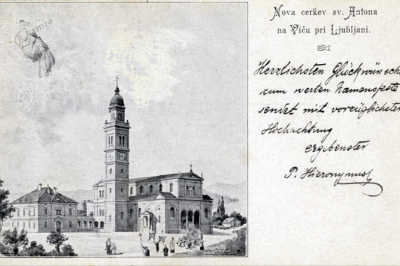 Nova cerkev sv. Antona
na Viču pri Ljubljani.
Herzlichsten Glückwunsch
zum werten Namensfeste
sendet mit vorzüglichster
Hochachtung
ergebenster
P. Hieronymus